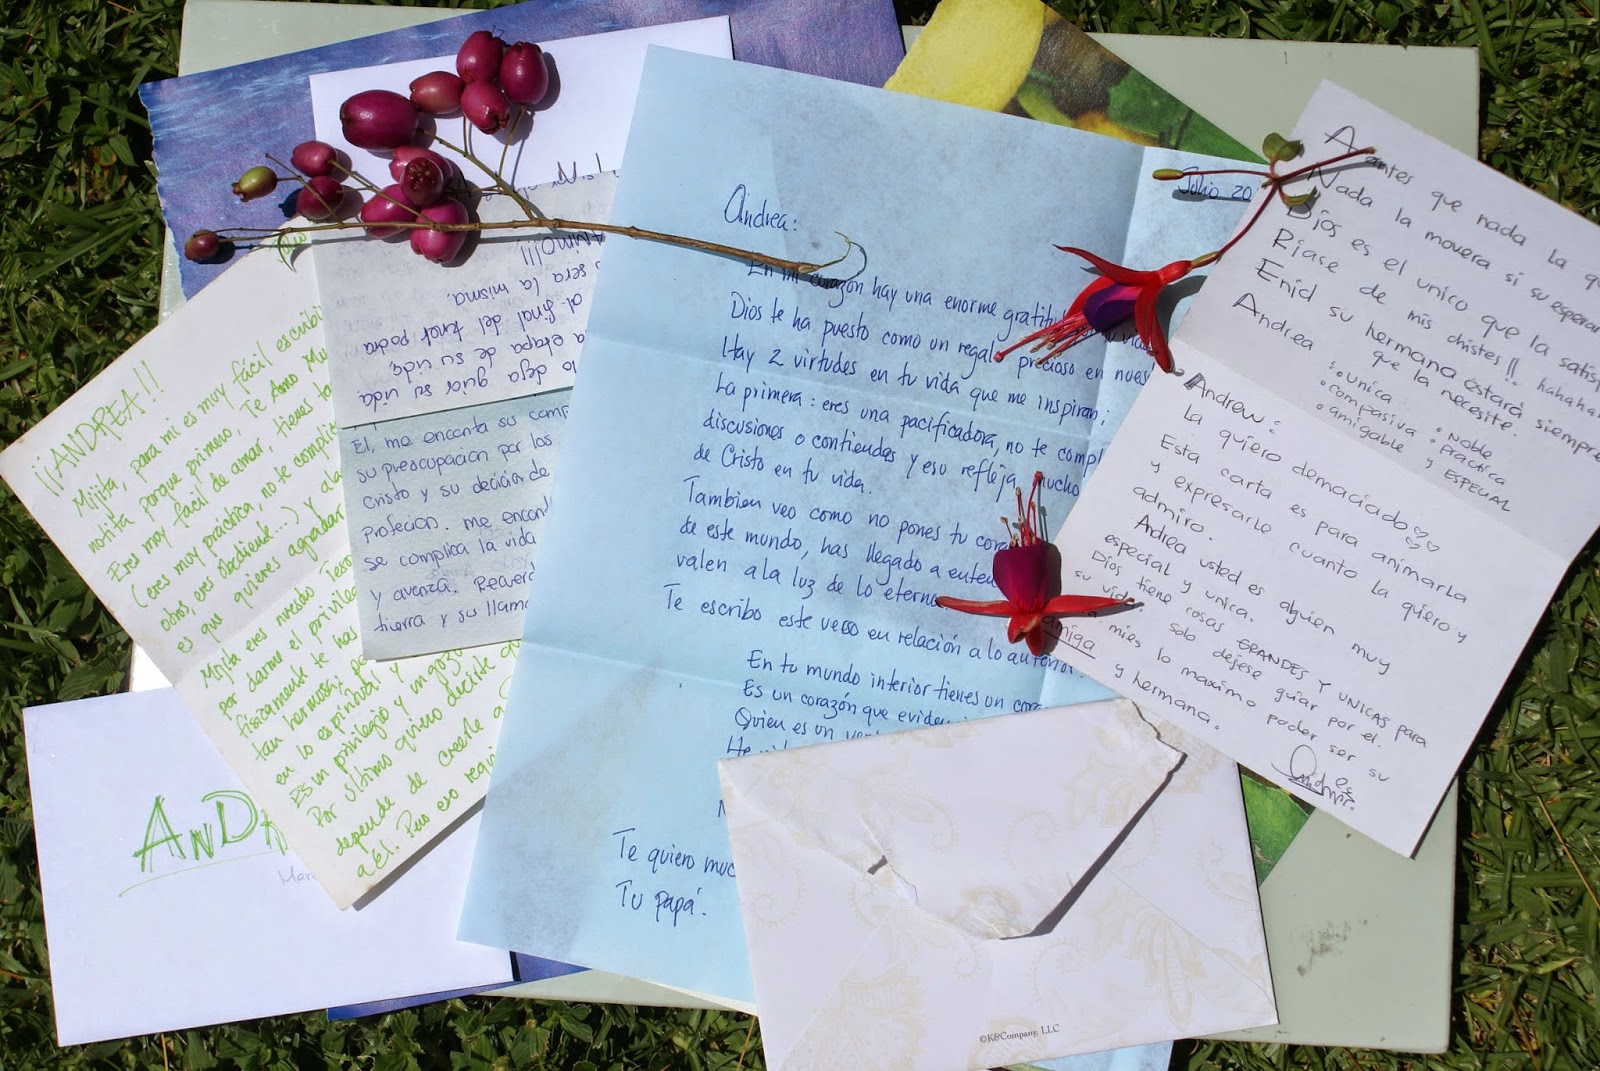 ¡¡ANDREA!!
Mijita, para mi es muy fácil escribi
notita porque primero, Te Amo Mu
Eres muy fácil de amar, tienes ta
(eres muy práctica, no te complic
otros, eres obediente...) Y ala
es que quieres agradar
Mijita eres nuestro Teso
por darme el privile
físicamente te has
tan hermosa, pe
en lo espiritual y
Es un privilegio y un gozo
Por último quiero decirte que
depende de creerle a
a Él. Pero eso requi
ANDR
Mar
ANIMO!!!
será la misma,
al final del túnel podrá
a etapa de su vida,
lo deja guiar su vida
El, me encanta su comp
su preocupacion por los
Cristo y su decicion de
profecion. me encant
se complica la vida
y avanza. Recuerd
tierra y su llama
Julio 20
Andrea:
En mi corazón hay una enorme gratitud vida
Dios te ha puesto como un regalo precioso en nues
Hay 2 virtudes en tu vida que me inspiran:
La primera: eres una pacificadora, no te compl
discusiones o contiendas y eso refleja mucho
de Cristo en tu vida.
Tambien veo como no pones tu cora
de este mundo, has llegado a enten
valen a la luz de lo eterno.
Te escribo este verso en relación a lo anterior:
En tu mundo interior tienes un cora
Es un corazón que eviden
Quien es un ver
He
Te quiero muc
Tu papá.
Antes que nada la qu
Nada la movera si su esperan
Dios es el unico que la satisf
Ríase de mis chistes!! hahahah
Enid su hermana estará siempre
que la necesite.
Andrea
• Unica
• compasiva
• amigable y
• Noble
• Practica
ESPECIAL
Andrew:
La quiero demaciado♡♡♡
Esta carta es para animarla
y expresarle cuanto la quiero y
admiro.
Andrea usted es alguien muy
especial y unica.
Dios tiene cosas GRANDES Y UNICAS para
su vida, solo dejese guiar por el.
mies lo maximo poder ser su
amiga y hermana.
©K&Company, LLC